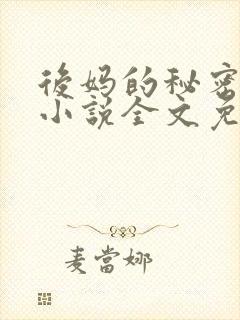 後妈的秘密
小說全文免
麦當娜